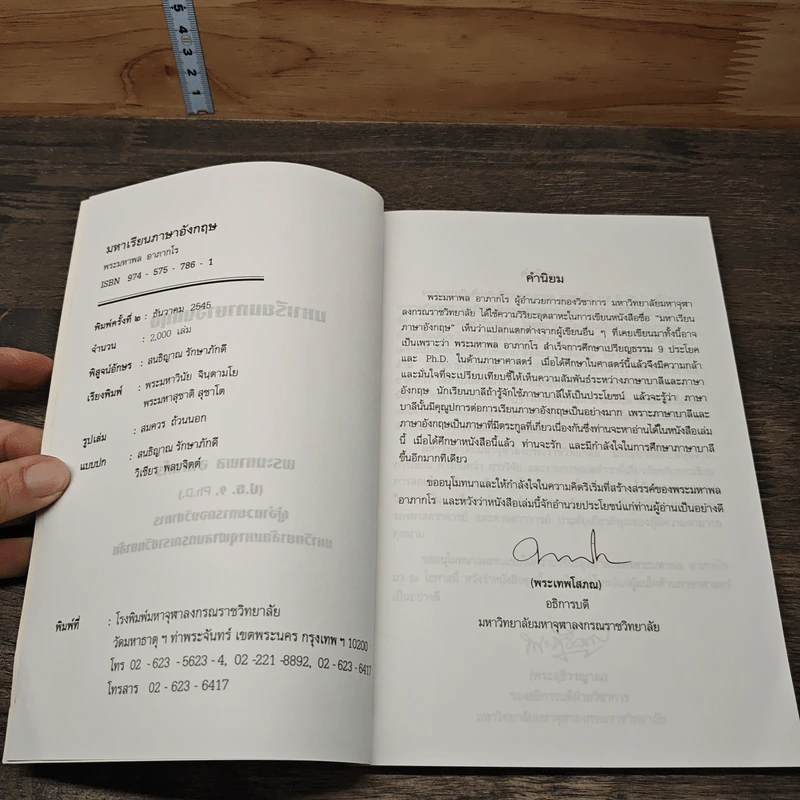 5
4
3
2
1
มหาเรียนภาษาอังกฤษ
พระมหาพล อาภากโร
ISBN 974 - 575 - 786 - 1
พิมพ์ครั้งที่ ๒ : ธันวาคม 2545
จำนวน : 2,000 เล่ม
พิสูจน์อักษร : สนธิญาณ รักษาภักดี
เรียงพิมพ์ : พระมหาวินัย จินฺตามโย
พระมหาสุชาติ สุชาโต
รูปเล่ม : สมควร ถ้วนนอก
แบบปก : สนธิญาณ รักษาภักดี
วิเชียร พิลบจิตต์
พิมพ์ที่ : โรงพิมพ์มหาจุฬาลงกรณราชวิทยาลัย
วัดมหาธาตุ ฯ ท่าพระจันทร์ เขตพระนคร กรุงเทพ ฯ 10200
โทร 02 - 623 - 5623 - 4, 02 -221 -8892, 02 - 623 - 6417
โทรสาร 02 - 623 - 6417
คำนิยม
พระมหาพล อาภากโร ผู้อำนวยการกองวิชาการ มหาวิทยาลัยมหาจุฬา
ลงกรณราชวิทยาลัย ได้ใช้ความวิริยะอุตสาหะในการเขียนหนังสือชื่อ "มหาเรียน
ภาษาอังกฤษ" เห็นว่าแปลกแตกต่างจากผู้เขียนอื่น ๆ ที่เคยเขียนมาทั้งนี้อาจ
เป็นเพราะว่า พระมหาพล อาภากโร สำเร็จการศึกษาเปรียญธรรม 9 ประโยค
และ Ph.D. ในด้านภาษาศาสตร์ เมื่อได้ศึกษาในศาสตร์นี้แล้วจึงมีความกล้า
และมั่นใจที่จะเปรียบเทียบชี้ให้เห็นความสัมพันธ์ระหว่างภาษาบาลีและภาษา
อังกฤษ นักเรียนบาลีถ้ารู้จักใช้ภาษาบาลีให้เป็นประโยชน์ แล้วจะรู้ว่า ภาษา
บาลีนั้นมีคุณูปการต่อการเรียนภาษาอังกฤษเป็นอย่างมาก เพราะภาษาบาลีและ
ภาษาอังกฤษเป็นภาษาที่มีตระกูลที่เกี่ยวเนื่องกันซึ่งท่านจะหาอ่านได้ในหนังสือเล่ม
นี้ เมื่อได้ศึกษาหนังสือนี้แล้ว ท่านจะรัก และมีกำลังใจในการศึกษาภาษาบาลี
ขึ้นอีกมากทีเดียว
ขออนุโมทนาและให้กำลังใจในความคิดริเริ่มที่สร้างสรรค์ของพระมหาพล
อาภากโร และหวังว่าหนังสือเล่มนี้จักอำนวยประโยชน์แก่ท่านผู้อ่านเป็นอย่างดี
(พระเทพโสภณ)
อธิการบดี
มหาวิทยาลัยมหาจุฬาลงกรณราชวิทยาลัย